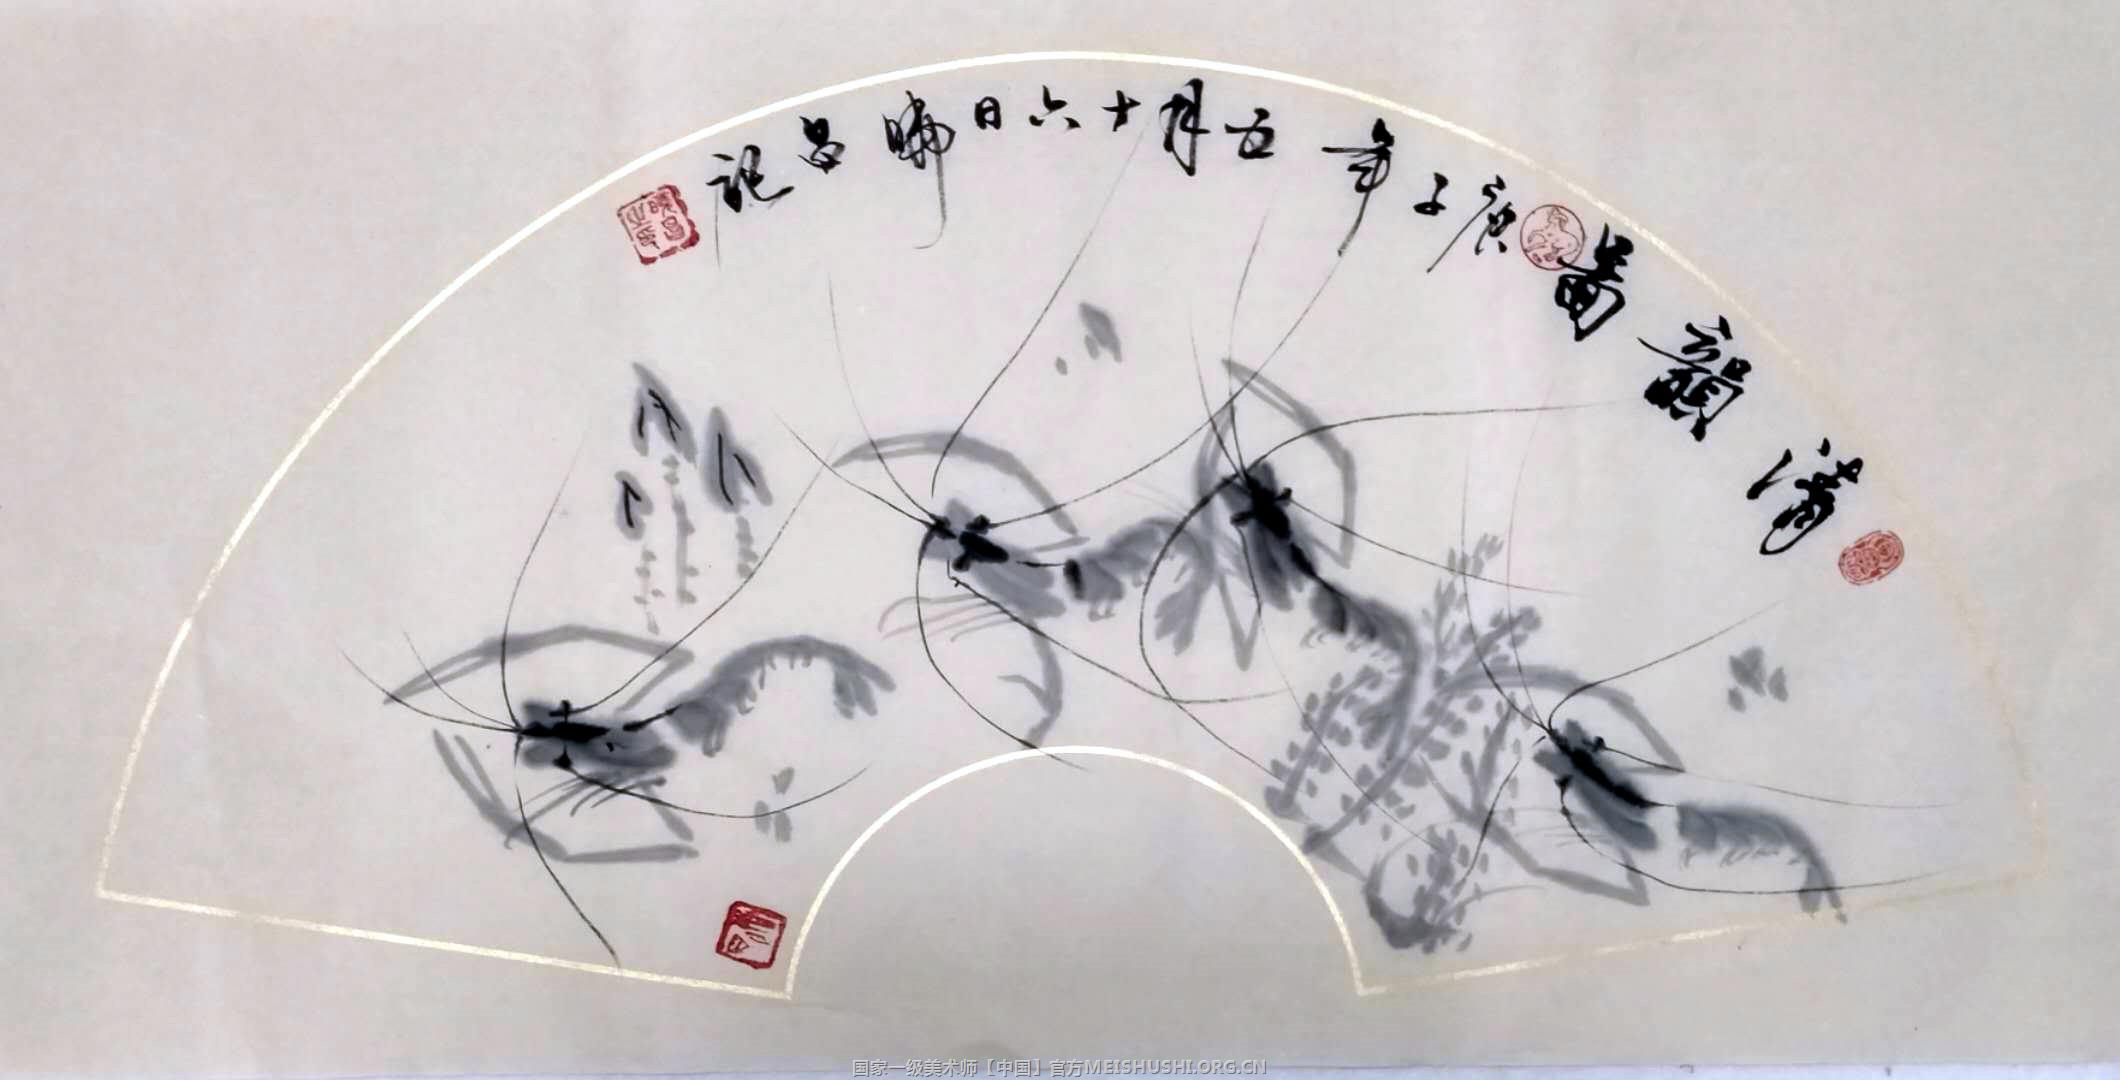 清韻圖
庚子年五月十六日昌記
国家一级美术师【中国】官方MEISHUSHI.ORG.CN